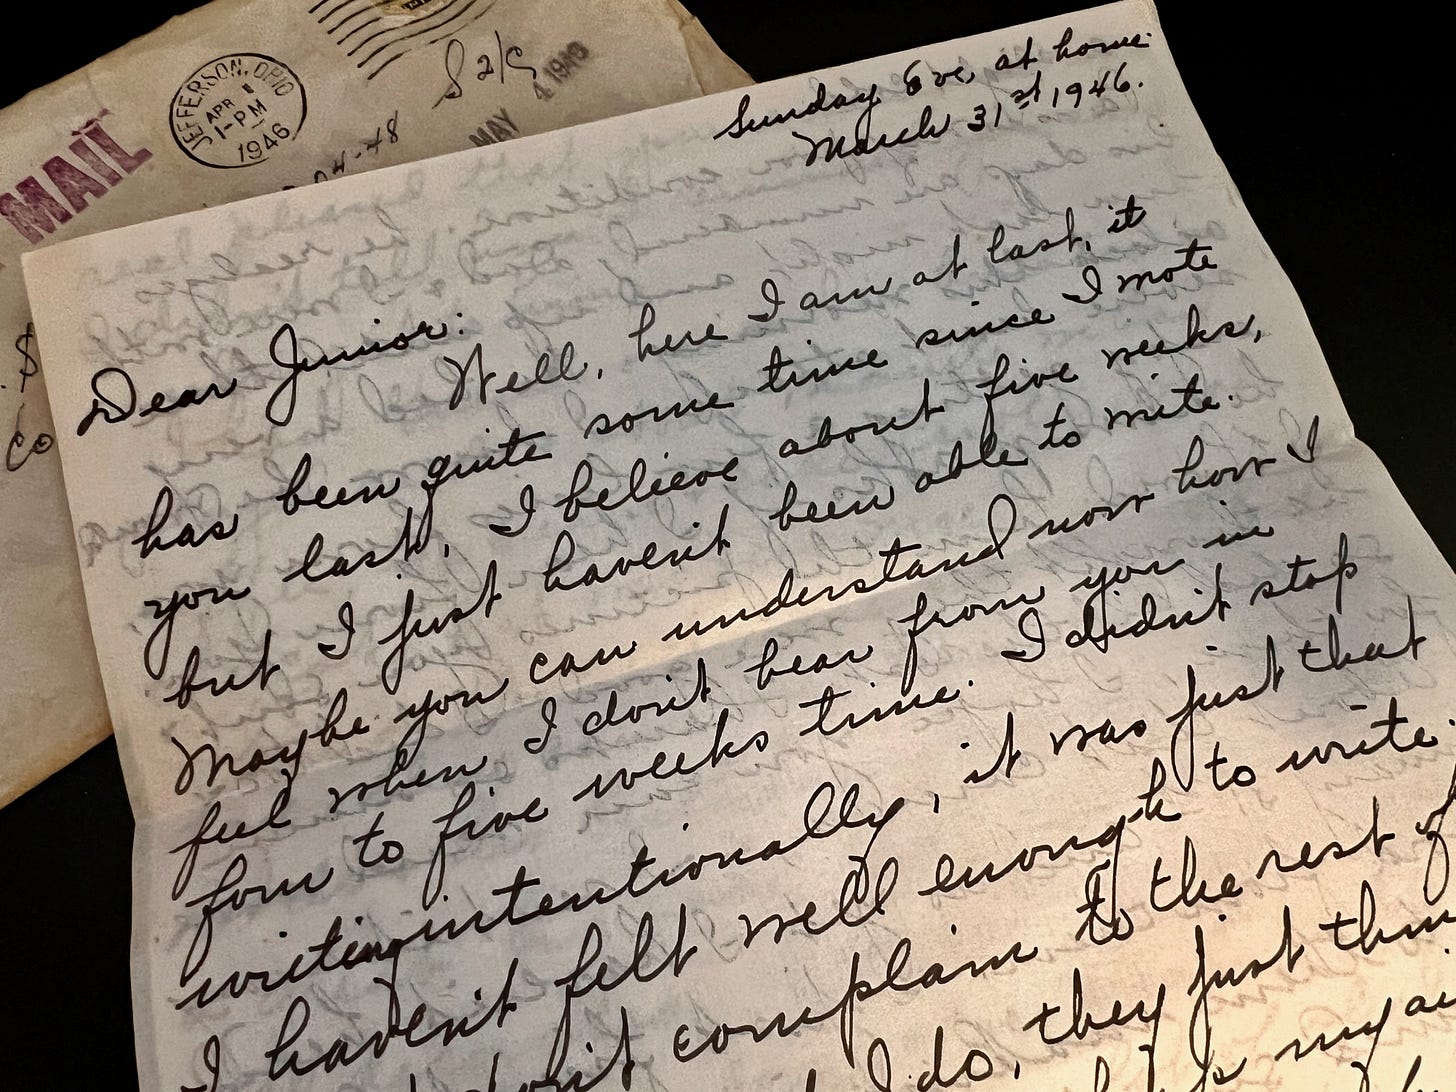 MAIL
JEFFERSON, OHIO
APR 1
1-PM
1946
S2/c
MAY 4 1946
04-48
$
Co
Sunday Eve, at home
March 31st 1946.
Dear Junior:
Well, here I am at last, it
has been quite some time since I wrote
you last, I believe about five weeks,
but I just haven't been able to write.
Maybe you can understand now how I
feel when I don't hear from you in
four to five weeks time. I didn't stop
writing intentionally, it was just that
I haven't felt well enough to write.
complain to the rest of
I do, they just
my